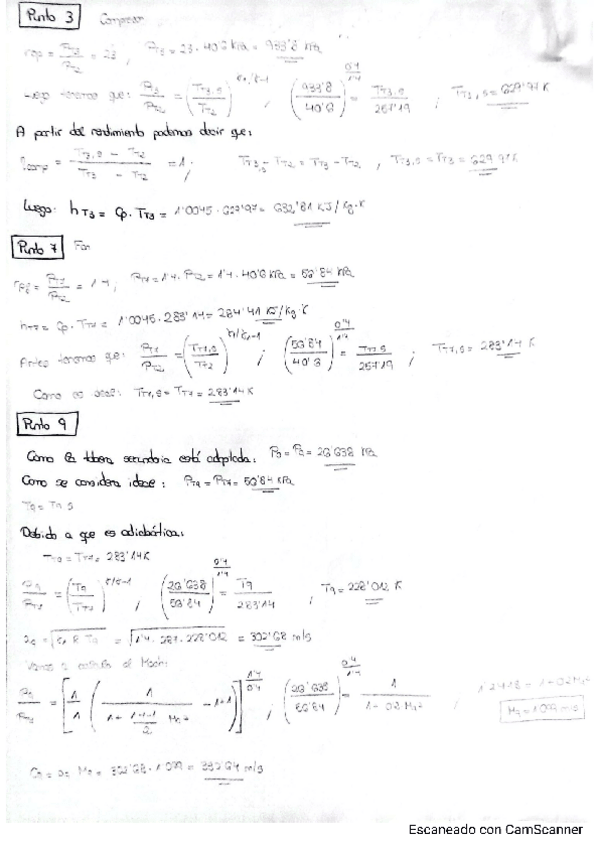 Punto 3 Compresor
= 23, P_T3 = 23 · 40'6 kPa = 933'8 kPa
tenemos que: P_T3/P_T2 = (T_T3,s/T_T2) ; (933'8/40'6)^(0'4/1'4) = T_T3,s/257'19 ; T_T3,s = 629'97 K
A partir del rendimiento podemos decir que:
= T_T3,s - T_T2 / T_T3 - T_T2 = 1 ; T_T3,s - T_T2 = T_T3 - T_T2 , T_T3,s = T_T3 = 629'97 K
Luego: h_T3 = Cp · T_T3 = 1'0045 · 629'97 = 632'81 KJ/Kg·K
Punto 7 Fan
= P_T7/P_T2 = 1'4 ; P_T7 = 1'4 · P_T2 = 1'4 · 40'6 kPa = 56'84 kPa
h_T7 = Cp · T_T7 = 1'0045 · 283'14 = 284'41 KJ/Kg·K
Antes tenemos que: P_T7/P_T2 = (T_T7,s/T_T2)^(γ/γ-1) ; (56'84/40'6)^(0'4/1'4) = T_T7,s/257'19 ; T_T7,s = 283'14 K
Como es ideal: T_T7,s = T_T7 = 283'14 K
Punto 9
Como la tobera secundaria está adaptada: P_9 = = 26'638 kPa
Como se considera ideal: P_T9 = P_T7 = 56'84 kPa
T_9 = T_9,s
Debido a que es adiabática:
T_T9 = T_T7 = 283'14 K
P_9/P_T9 = (T_9/T_T9)^(γ/γ-1) , (26'638/56'84)^(0'4/1'4) = T_9/283'14 , T_9 = 228'012 K
= √(γ R T_9) = √(1'4 · 287 · 228'012) = 302'68 m/s
Vamos a calcular el Mach:
P_9/P_T9 = [1/1 (1/(1 + (1'4-1)/2 M_9²) - 1 + 1)]^(1'4/0'4) ; (26'638/56'84)^(0'4/1'4) = 1/(1 + 0'2 M_9²) ; 1'2418 = 1 + 0'2 M_9²
M_9 = 1'099 m/s
C_9 = a_9 M_9 = 302'68 · 1'099 = 332'64 m/s
Escaneado con CamScanner